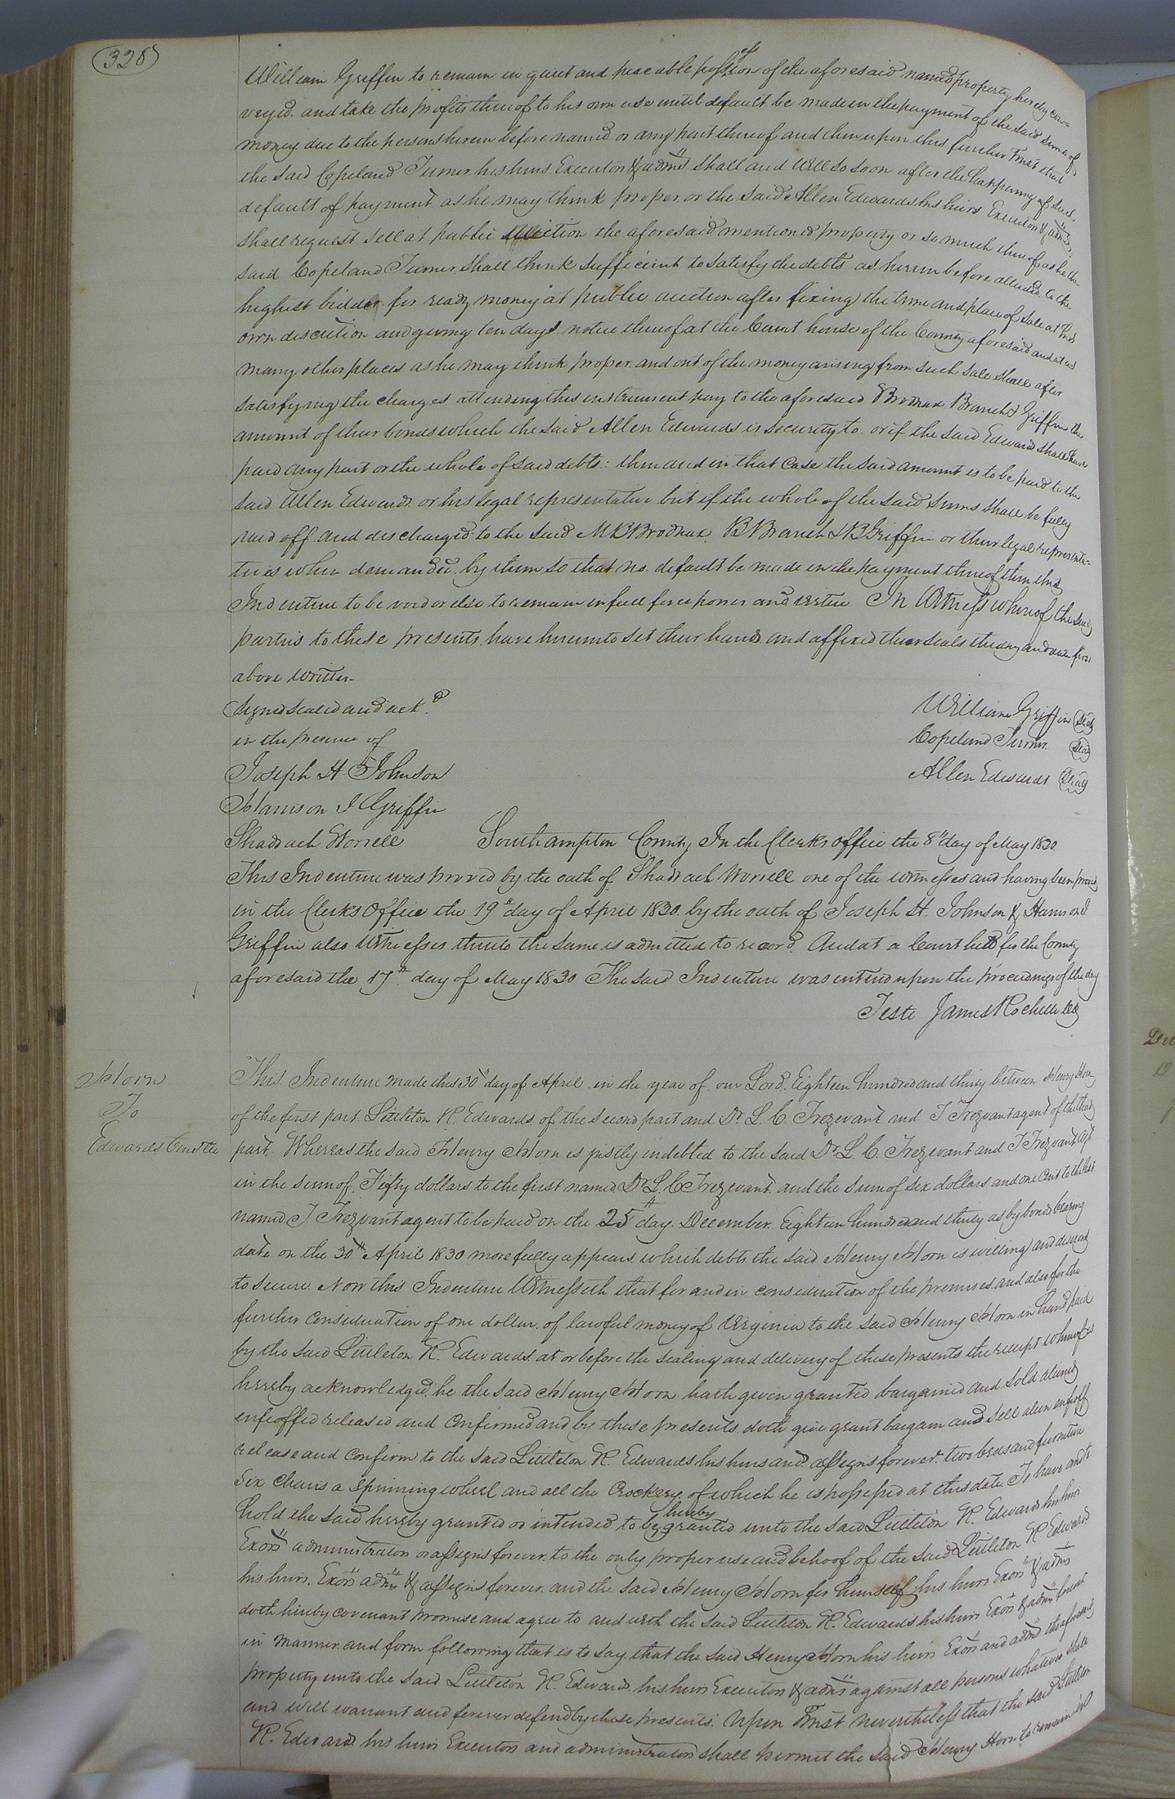 328
William Griffin to remain in quiet and peaceable possession of the aforesaid named property hereby con-
veyed. and take the profits thereof to his own use until default be made in the payment of the said sums of
money due to the persons herein before named or any part thereof and then upon this further Trust that
the said Copeland Turner his heirs Executors & adms shall and will so soon after the happening of such
default of payment as he may think proper or the said Allen Edwards his heirs Executors & adms
shall request. sell at public auction the aforesaid mentioned property or so much thereof as he the
said Copeland Turner shall think sufficient to satisfy the debts as herein before alluded to the
highest bidder for ready money at public auction after fixing the time and place of sale at his
own discretion and giving ten days notice thereof at the Court house of the County aforesaid and at as
many other places as he may think proper. and out of the money arising from such sale shall after
satisfying the charges attending this instrument pay to the aforesaid Brodnax Branch & Griffin the
amount of their bonds which the said Allen Edwards is security to. or if the said Edwards shall have
paid any part or the whole of said debts: then and in that case the said amount is to be paid to the
said Allen Edwards or his legal representative but if the whole of the said sums shall be fully
paid off and discharged to the said M B Brodnax. B Branch & B Griffin or their legal representa-
tives when demanded. by them so that no default be made in the payment thereof then this
Indenture to be void or else to remain in full force power and virtue In Witness whereof the said
parties to these presents have hereunto set their hands and affixed their seals the day and year first
above written
Signed sealed and ack.d
in the presence of
Joseph H Johnson
Harrison J Griffin
Shadrach Worrell
William Griffin Seal
Copeland Turner Seal
Allen Edwards Seal
Southampton County In the Clerks office the 8th day of May 1830
This Indenture was proved by the oath of Shadrach Worrell one of the witnesses and having been proved
in the Clerks Office the 19th day of April 1830. by the oath of Joseph H. Johnson & Harrison J
Griffin also Witnesses thereto the same is admitted to record. And at a Court held for the County
aforesaid the 17th day of May 1830 The said Indenture was entered upon the proceedings of the day
Teste James Rochelle clk
Horn
To
Edwards trustee
This Indenture made this 30th day of April in the year of our Lord. Eighteen hundred and thirty between Henry Horn
of the first part. Littleton R Edwards of the second part and Dr L C Trezevant and J Trezvant agent of the third
part. Whereas the said Henry Horn is justly indebted to the said Dr L. C. Trezevant and J Trezvant agt
in the sum of Fifty dollars to the first named Dr L C Trezevant and the sum of six dollars and one Cent to the last
named J Trezvant agent to be paid on the 25th day December. Eighteen hundred and thirty as by bonds bearing
date on the 30th April 1830 more fully appears which debts the said Henry Horn is willing and desirous
to secure. Now this Indenture Witnesseth that for and in consideration of the premises. and also for the
further consideration of one dollar of lawful money of Virginia to the said Henry Horn in hand paid
by the said Littleton R. Edwards. at or before the sealing and delivery of these presents the receipt whereof is
hereby acknowledged. he the said Henry Horn hath given granted bargained and sold aliened
enfeoffed released and Confirmed and by these presents doth give grant bargain and sell alien enfeoff
release and Confirm to the said Littleton R Edwards his heirs and assigns forever. two beds and furniture
Six Chairs a Spinning wheel and all the Crockery of which he is possessed at this date. To have and to
hold the said hereby granted or intended to be hereby granted unto the said Littleton R. Edwards his heirs
Exors administrators or assigns forever. to the only proper use and behoof of the said Littleton R Edwards
his heirs. Exors adms & assigns forever. and the said Henry Horn for himself his heirs Exors & adms
doth hereby covenant promise and agree to and with the said Littleton R. Edwards his heirs Exors & adms
in manner and form following that is to say that the said Henry Horn his heirs Exors and adms the aforesaid
property unto the said Littleton R. Edwards his heirs Executors & adms against all persons whatever shall
and will warrant and forever defend by these presents. Upon Trust nevertheless that the said Littleton
R. Edwards his heirs Executors and administrators shall permit the said Henry Horn to remain in